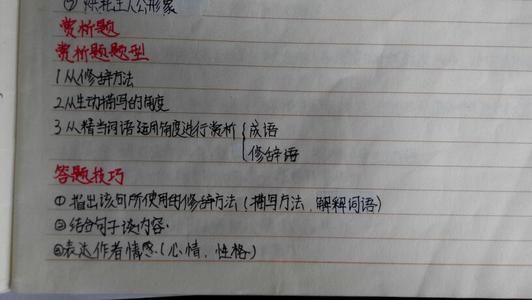 ⑦ 烘托主人公形象
赏析题
赏析题题型
1 从修辞方法
2 从生动描写的角度
3 从精当词语运用角度进行赏析 { 成语
修辞语
答题技巧
① 指出该句所使用的修辞方法 (描写方法、解释词语)
② 结合句子谈内容.
③ 表达作者情感.(心情, 性格)